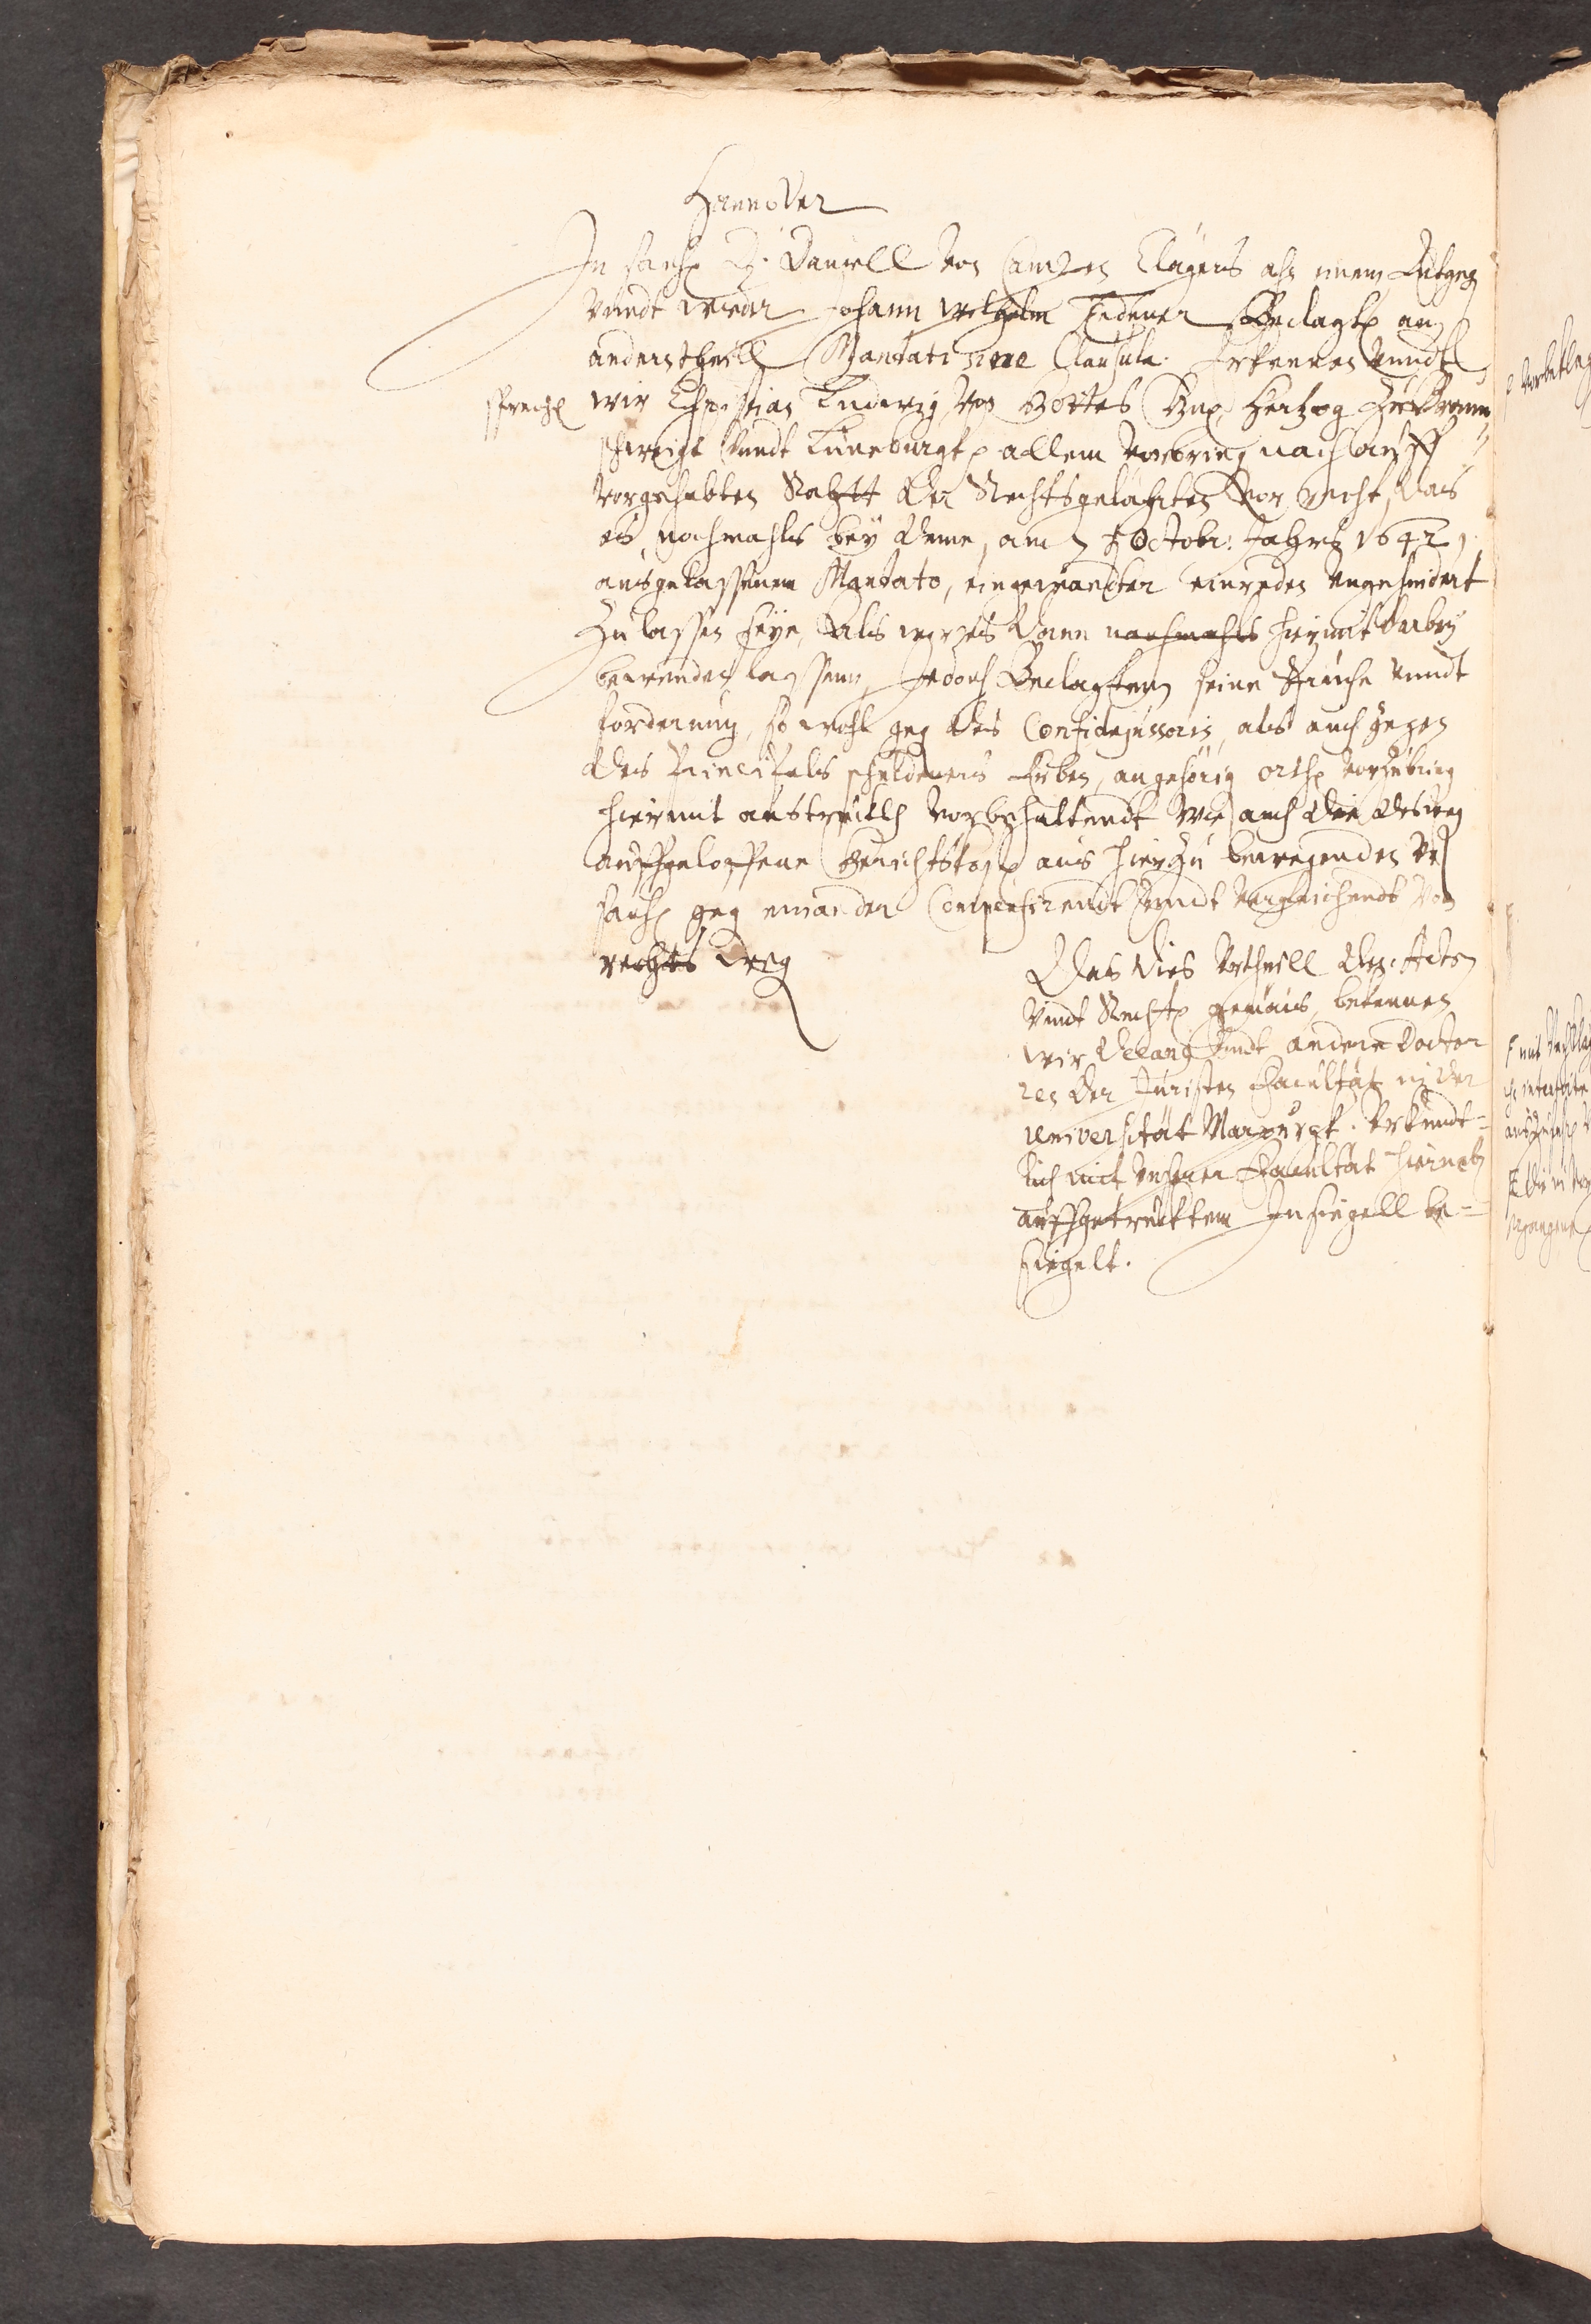 Hannover
In sach D. Daniell von Campen Clägers ahn einem entgeg
vundt wieder Johann Wilhelm Beclagt an
anderstheill Mandati sine Clausula. Erkennen vundt
sprech wir Christian Ludwig von Gottes Gnad Hertzog zu Braun
schweigk vundt Lüneburgk allem vorbring nach auff
vorgehabten Rahtt der Rechtsgelährten vor recht, das
es nochmahls bey deme, am 7 Octobr: Jahrs 1642,
ausgelassenem Mandato, eingewandter einreden ungehindert
zu lassen seye, Als wir es dann nachmahls hiermit darbey
bewenden lassenn, Jedoch Beclagtem seine Sprüche vundt
forderung, so wohl geg des Confidejussoris, als auch gegen
des Principals schuldeners Erben, an gehörig orth vorzubring
hiermit austrücklich vorbehaltendt wie auch die desweg
auffgeloffene Gerichtskost aus hierzu bewegenden Vr
sach geg einander Compensirendt vundt vergleichendt Von
rechts weg
Das dies Vrtheill den Acten
vndt Recht gemäes, bekennen
wir Decang vndt andere Doctor
ren der Juristen Facultät in der
Universität Marpurgk. Vrkundt-
lich mit unserer Facultät hierneb
auffgetrücktem Insiegell be-
siegelt.